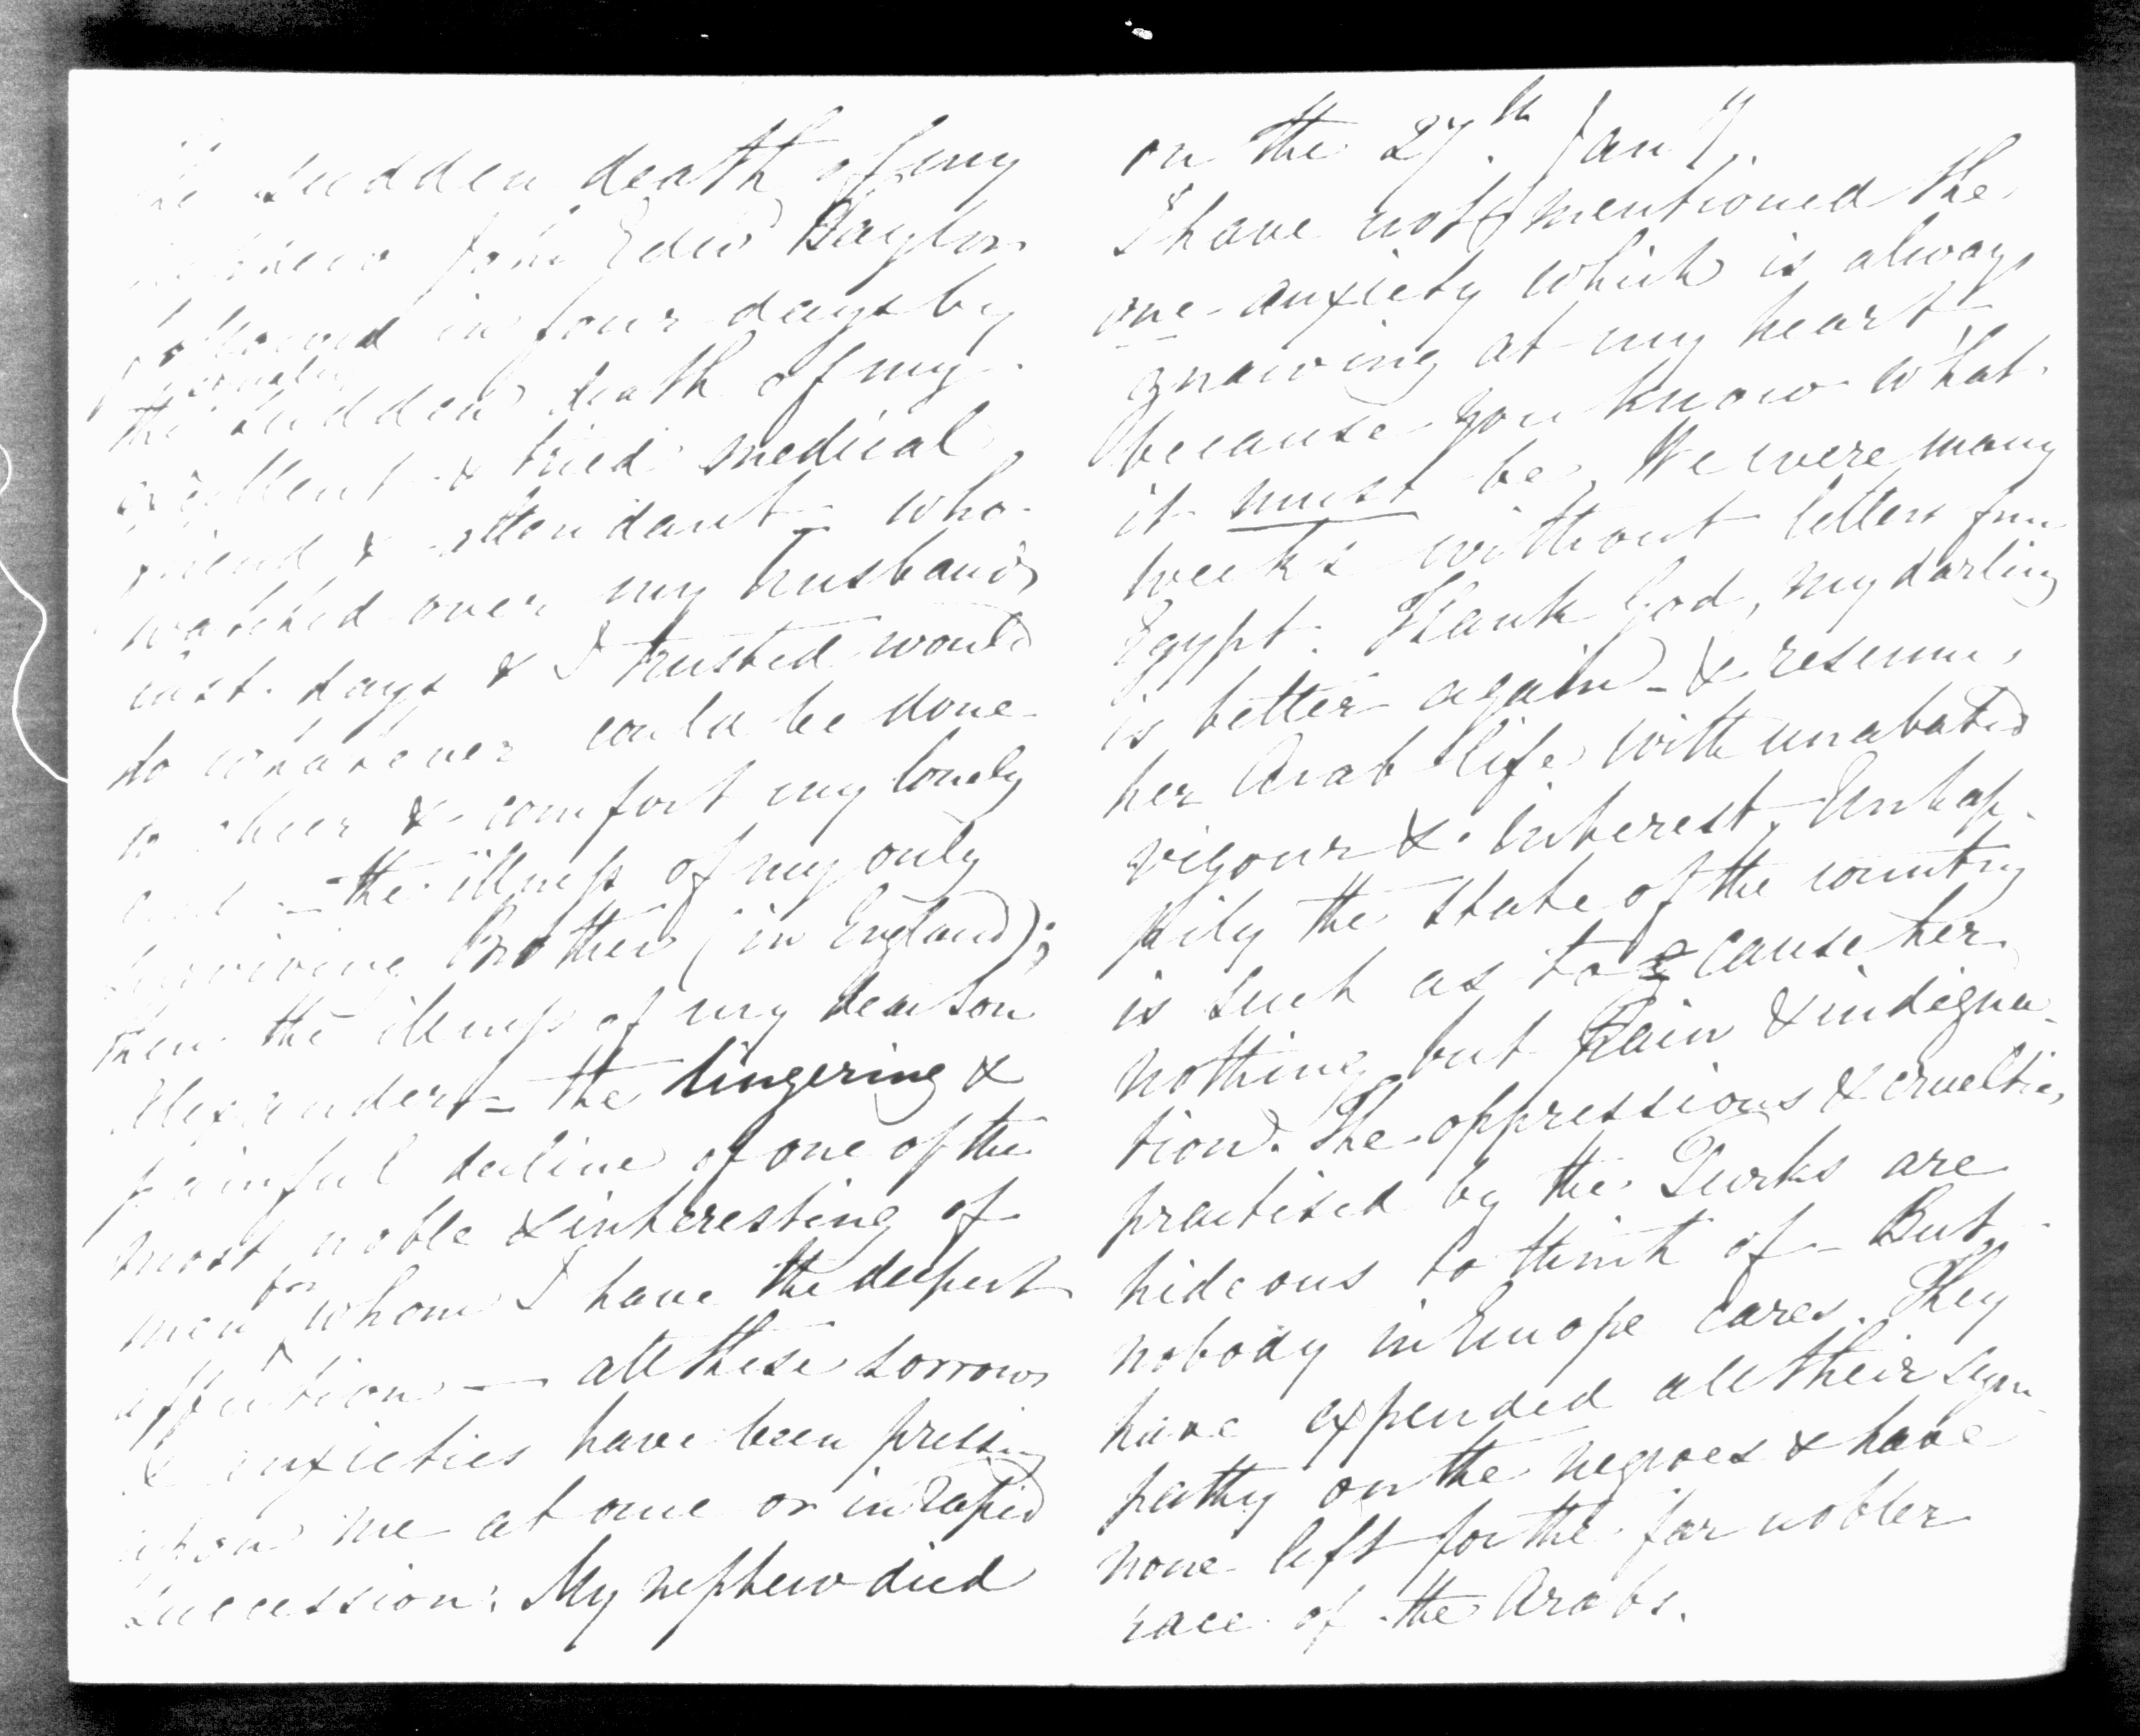 the sudden death of my
nephew John Edwd Taylor
followed in four days by
the sudden death of my
excellent & tried medical
friend & attendant - who
watched over my husband's
last days & I trusted would
do whatever could be done
to cheer & comfort my lonely
end - the illness of my only
surviving brother (in England);
then the illness of my dear Son
Alexander - the lingering &
painful decline of one of the
most noble & interesting of
men for whom I have the deepest
affection — all these sorrows
& anxieties have been pressing
upon me at once or in rapid
succession. My nephew died
on the 27th. Jany.
I have not mentioned the
one anxiety which is always
gnawing at my heart
because you know what
it must be. We were many
weeks without letters from
Egypt. Thank God, my darling
is better again - & resumes
her Arab life with unabated
vigour & interest. Unhap-
pily the state of the country
is such as to cause her
nothing but pain & indigna-
tion. The oppressions & cruelties
practised by the Turks are
hideous to think of - But
nobody in Europe cares. They
have expended all their sym-
pathy on the negroes & have
none left for the far nobler
race of the Arabs.